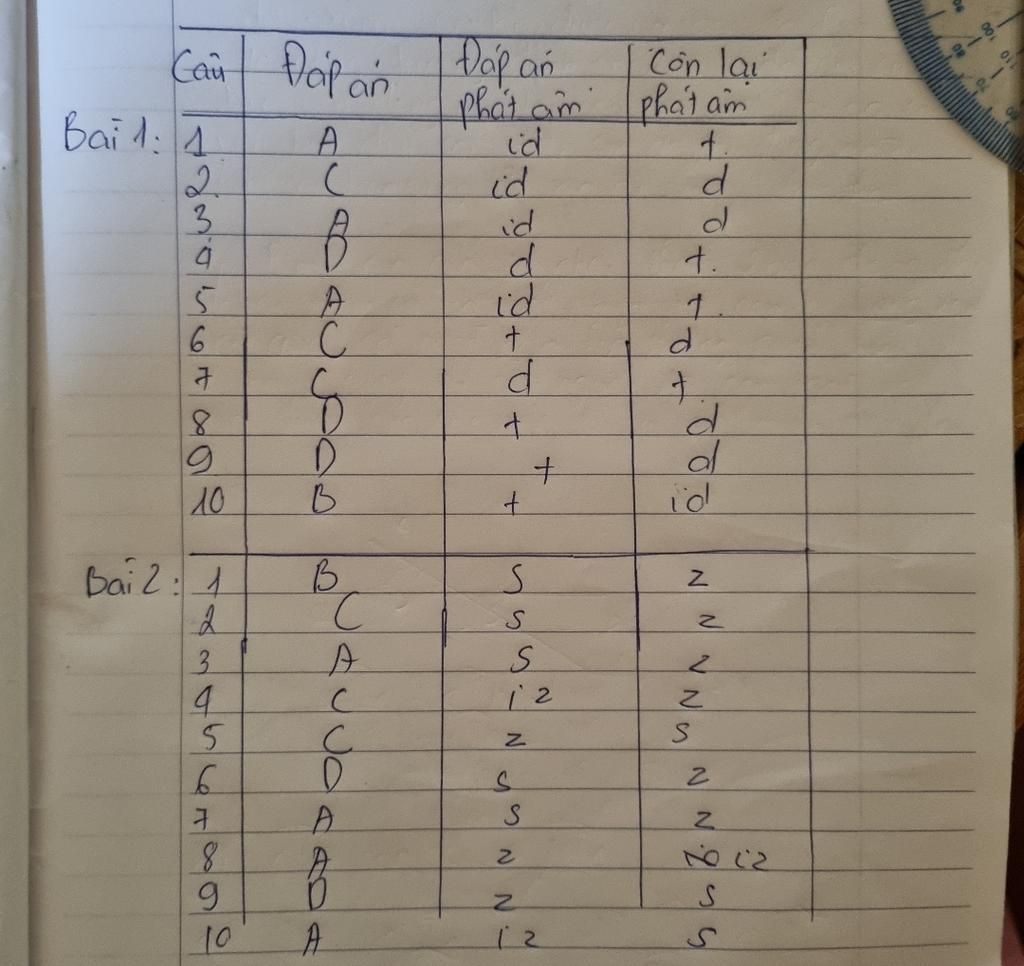 Câu Đáp án Đáp án phát âm Còn lại phát âm
Bài 1: 1 A id t
2 C id d
3 A id d
4 D d t.
5 A id t.
6 C t d
7 C d t.
8 D t d
9 D t d
10 B t id
Bài 2: 1 B s z
2 C s z
3 A s z
4 C iz z
5 C z s
6 D s z
7 A s z
8 A z iz
9 D z s
10 A iz s